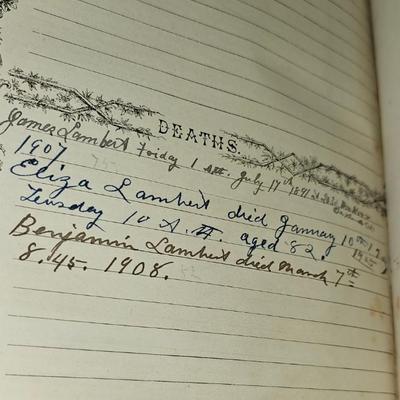 DEATHS.
James Lambert Friday 1 A.M. July 17th 1891
1907
Eliza Lambert died January 10th
Teusday 10 A.M. aged 82.
Benjamin Lambert died March 7th
8.45. 1908.